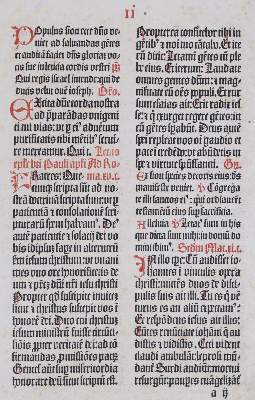 II
Populus sion ecce dñs ve
niet ad saluandas gẽtes
⁊ auditã faciet dñs gloriã vo
cis sue in leticia cordis vestri p̃s
Qui regis israel intende: qui de
ducis velut ouẽ ioseph.
Excita dñe corda nostra
ad p̃parãdas vnigeni
ti tui vias: vt p̱ eiꝰ aduentũ
purificatis tibi mẽtib⁹ serui
re mereamur. Qui t̃. Lectio
eplẽ bti̓ Pauli apli̓ Ad Ro
Fratres: Que- ma. xv. c.
cunq̃ scripta sũt ad no
stram doctrinã scripta sunt: vt p̱
patientiã ⁊ consolationẽ scri
pturarũ spem habeam⁹. De⁹
autẽ patientie ⁊ solacij det vo
bis idipsũ sapere in alterutrũ
scđm iesum christum: vt vnani
mes vno ore honorificetis de
um ⁊ p̃rẽ dñi nr̃i iesu christi
Propter qđ suscipite inuicẽ
sicut ⁊ christus suscepit vos ĩ
honorẽ dei. Dico em̃ christũ
iesum ministrũ fuisse circũci
sionis ꝓpter veritatẽ dei: ad cõ
firmandas ꝓmissiões patrũ
Gentes aũt sup̱ misericordia
honorare deũ sicut scriptũ est.
Propterea confitebor tibi in
gẽtib⁹ ⁊ noĩ tuo cãtabo. Et ite
rũ dicit: Letamĩ gẽtes cũ ple
be eius. Et iterum: Laudate
omnes gentes dñm: ⁊ magni
ficate eũ oẽs populi. Et rur
sum isaias ait: Erit radix ies
se: ⁊ q̃ exurget regere gẽtes: in
eũ gẽtes sp̱abũt. Deus autẽ
spei repleat vos oĩ gaudio et
pace ĩ credẽdo: vt abũdetis in
spe ⁊ virtute sp̃ussancti. Gr̃.
Ex sion species decoris eius: ds
manifeste veniet. v̓ Cõgrega
te illi sanctos ei⁹: qui ordinauerũt
testamẽtũ eius sup̱ sacrificia.
Alleluia v̓ Letat⁹ sum in his
que dicta sunt mihi: in domũ do
mini ibim⁹. Scđm Mat. xi. c.
In illo tp̱e: Cũ audisset io
annes ĩ vinculis opera
christi: mittẽs duos de disci
pulis suis ait illi. Tu es q̃ vẽ
turus es: an aliũ expectam⁹?
Et respõdens iesus ait illis:
Eũtes renũciate iohãni que au
distis ⁊ vidistis. Ceci vident
claudi ambulãt: leprosi mũ
dant̃. Surdi audiũt: mortui
resurgũt: paup̱es euãgelizãt̃
a ij